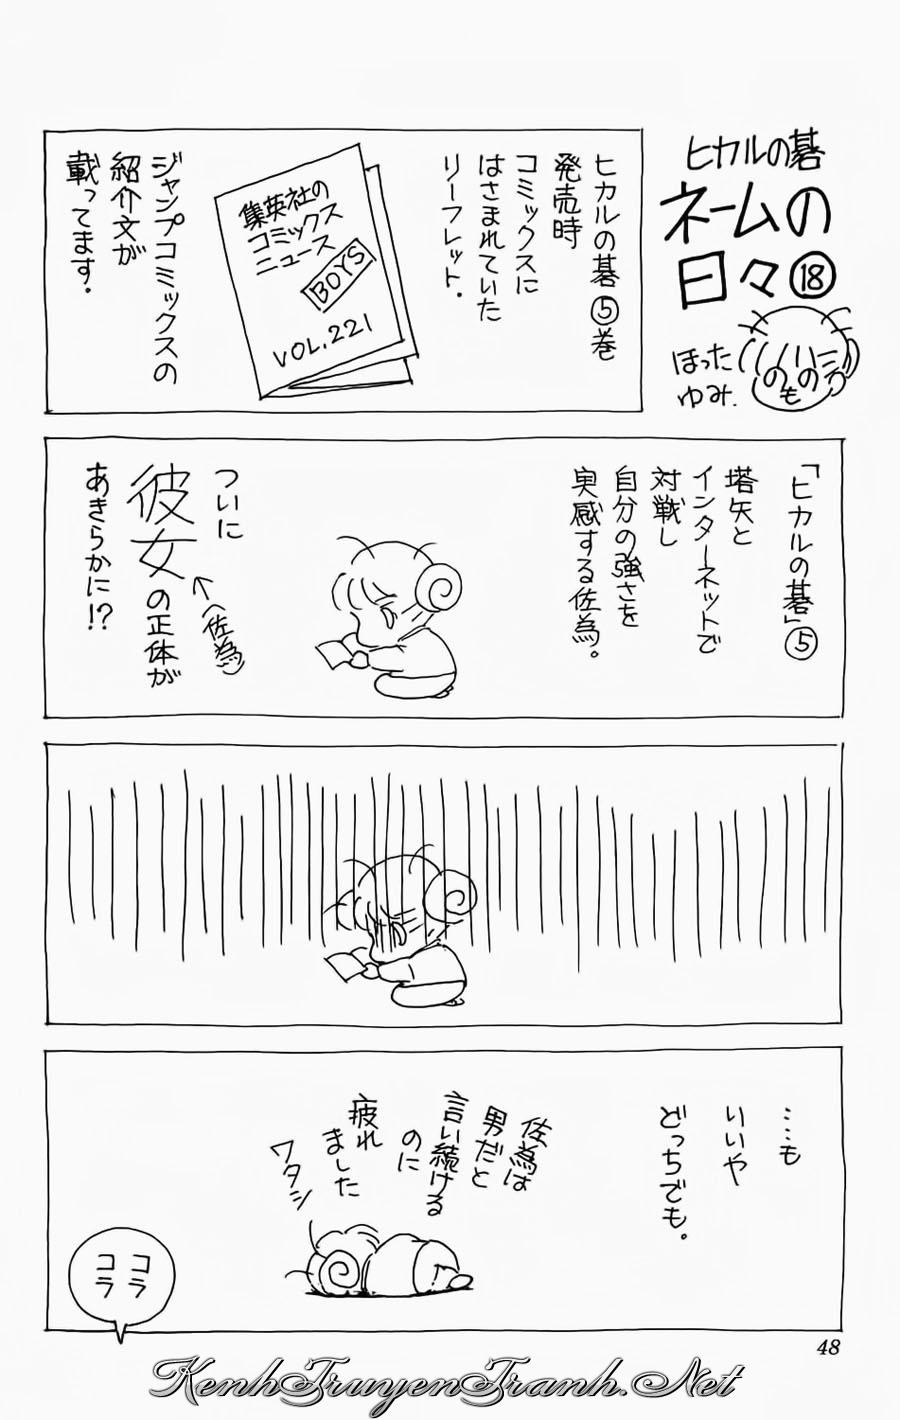 ヒカルの碁
ネームの
日々⑱
ほった
ゆみ.
ヒカルの碁⑤巻
発売時
コミックスに
はさまれていた
リーフレット.
集英社の
コミックス
ニュース
BOYS
VOL.221
ジャンプコミックスの
紹介文が
載ってます.
「ヒカルの碁」⑤
塔矢と
インターネットで
対戦し
自分の強さを
実感する佐為。
ついに
彼女の正体が
(佐為)
あきらかに!?
……も
いいや
どっちでも。
佐為は
男だと
言い続ける
のに
疲れ
ました
ワタシ
コラ
コラ
48
KenhTruyenTranh.Net